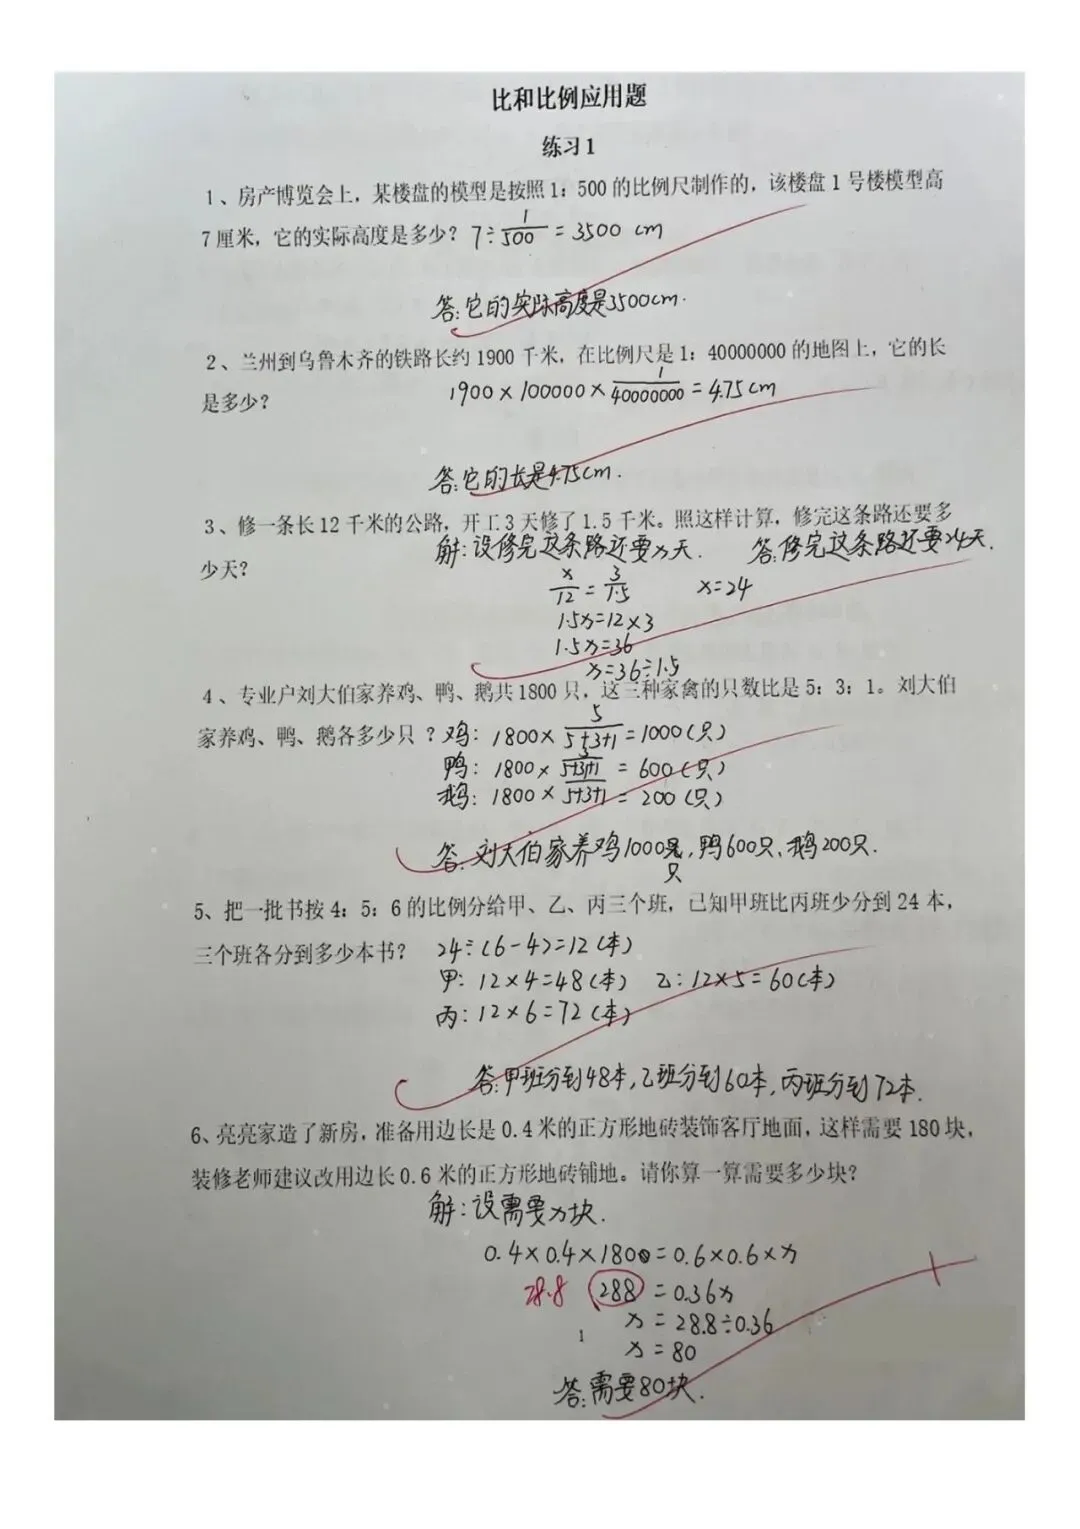 比和比例应用题
练习1
1、房产博览会上，某楼盘的模型是按照1：500的比例尺制作的，该楼盘1号楼模型高
7厘米，它的实际高度是多少？ 7÷1/500=3500 cm
答：它的实际高度是3500cm.
2、兰州到乌鲁木齐的铁路长约1900千米，在比例尺是1：40000000的地图上，它的长
是多少？ 1900×100000×1/40000000=4.75cm
答：它的长是4.75cm.
3、修一条长12千米的公路，开工3天修了1.5千米。照这样计算，修完这条路还要多
少天？ 解：设修完这条路还要x天. 答：修完这条路还要24天.
x/12=3/1.5 x=24
1.5x=12×3
1.5x=36
x=36÷1.5
4、专业户刘大伯家养鸡、鸭、鹅共1800只，这三种家禽的只数比是5：3：1。刘大伯
家养鸡、鸭、鹅各多少只？ 鸡：1800×5/5+3+1=1000(只)
鸭：1800×3/5+3+1=600(只)
鹅：1800×1/5+3+1=200(只)
答：刘大伯家养鸡1000只，鸭600只，鹅200只.
5、把一批书按4：5：6的比例分给甲、乙、丙三个班，已知甲班比丙班少分到24本，
三个班各分到多少本书？ 24÷(6-4)=12(本)
甲：12×4=48(本) 乙：12×5=60(本)
丙：12×6=72(本)
答：甲班分到48本，乙班分到60本，丙班分到72本.
6、亮亮家造了新房，准备用边长是0.4米的正方形地砖装饰客厅地面，这样需要180块，
装修老师建议改用边长0.6米的正方形地砖铺地。请你算一算需要多少块？
解：设需要x块.
0.4×0.4×180=0.6×0.6×x
28.8 288=0.36x
x=28.8÷0.36
1
x=80
答：需要80块.